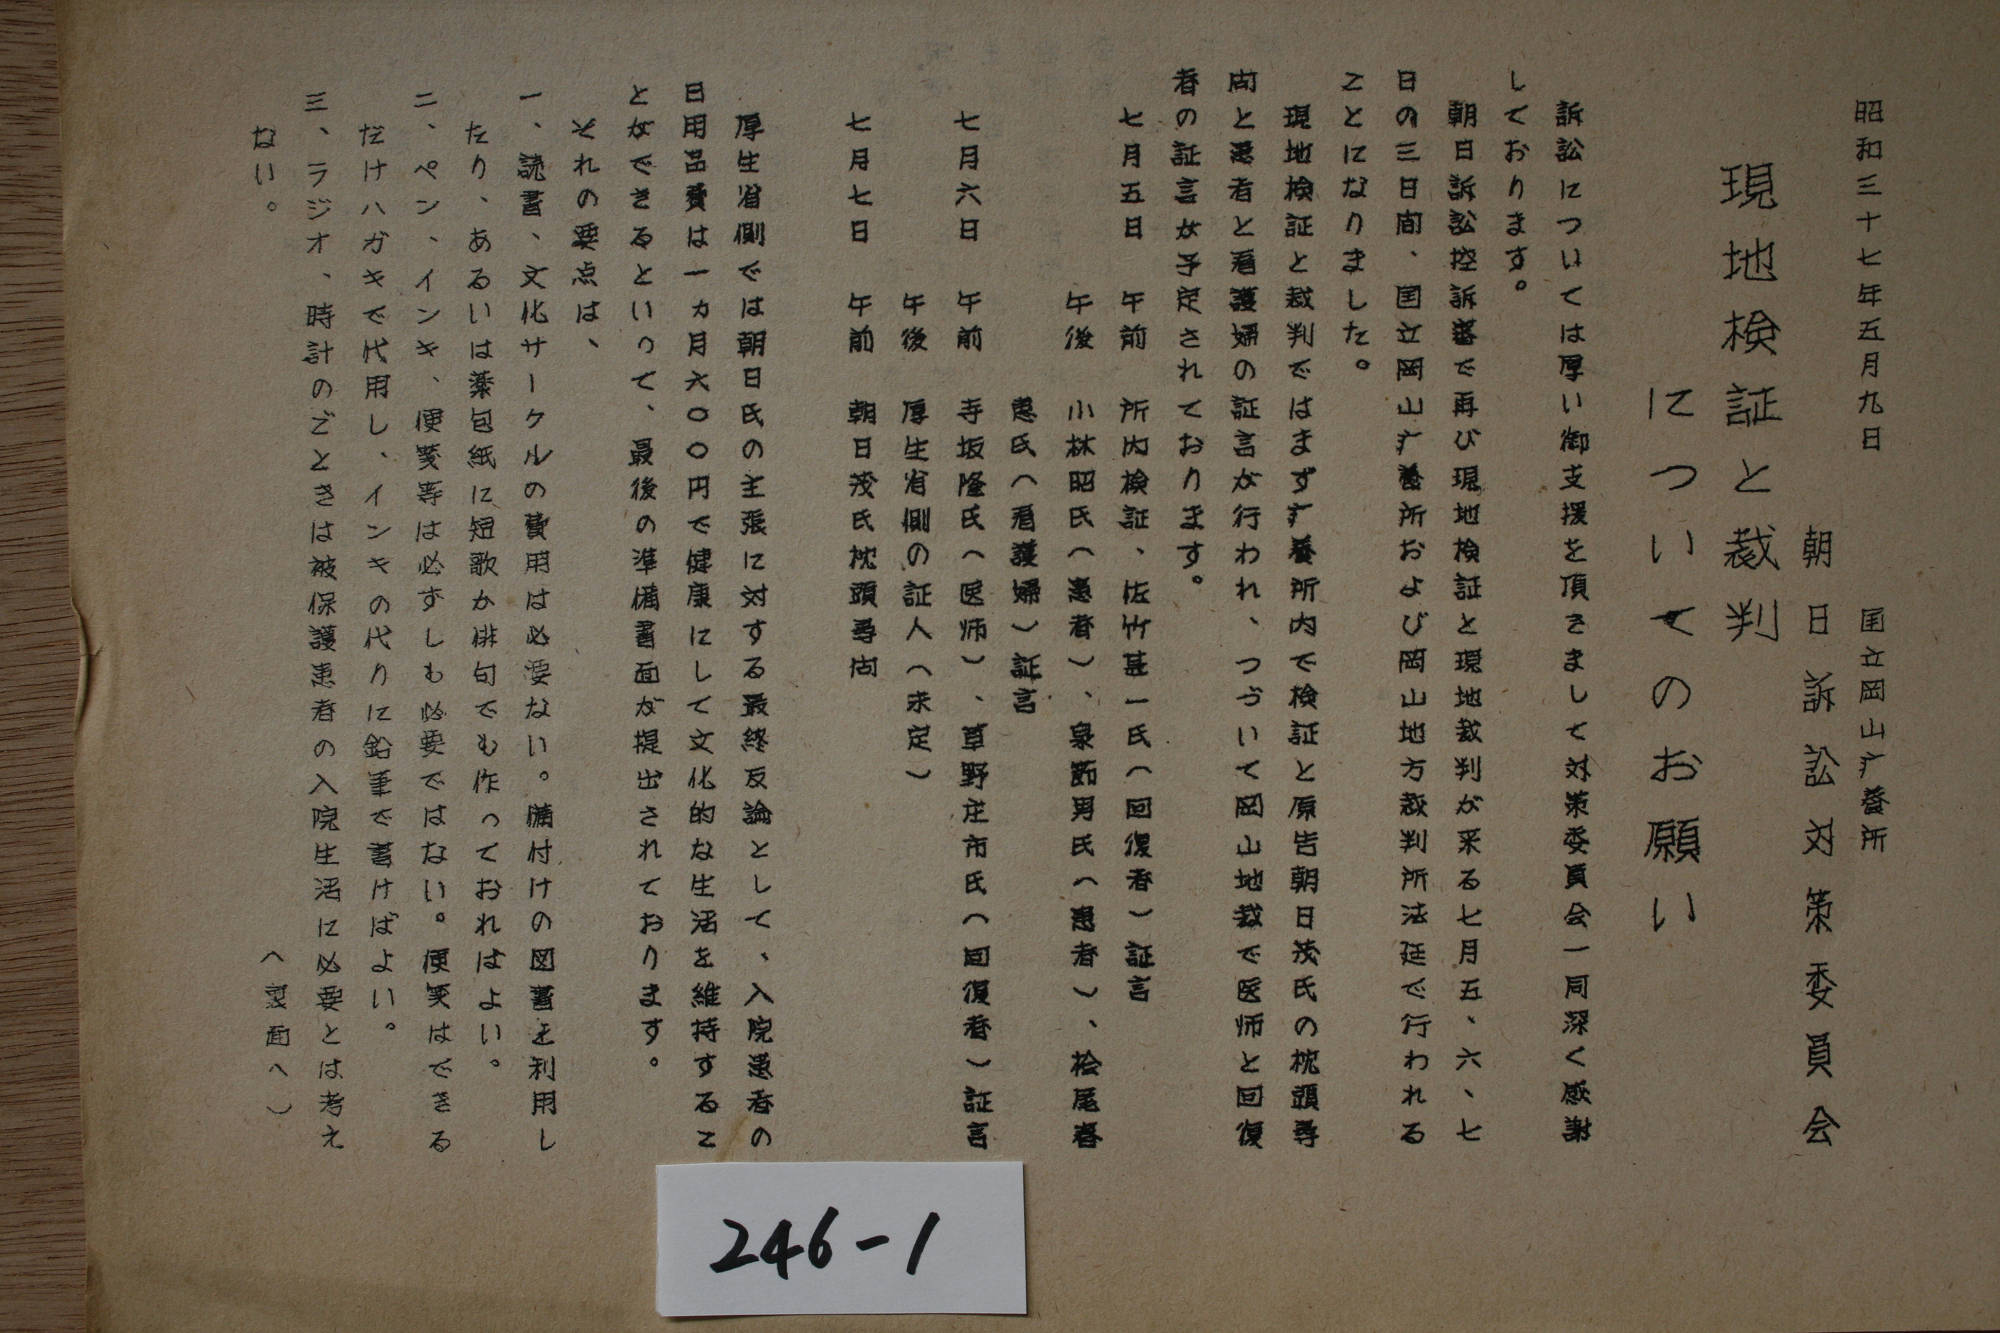 昭和三十七年五月九日
国立岡山疒養所
朝日訴訟対策委員会
現地検証と裁判
についてのお願い
訴訟については厚い御支援を頂きまして対策委員会一同深く感謝
しております。
朝日訴訟控訴審で再び現地検証と現地裁判が来る七月五、六、七
日の三日間、国立岡山疒養所および岡山地方裁判所法廷で行われる
ことになりました。
現地検証と裁判ではまず疒養所内で検証と原告朝日茂氏の枕頭尋
問と患者と看護婦の証言が行われ、つづいて岡山地裁で医师と回復
者の証言が予定されております。
七月五日 午前 所内検証、佐竹甚一氏（回復者）証言
午後 小林昭氏（患者）、泉節男氏（患者）、桧尾春
恵氏（看護婦）証言
七月六日 午前 寺坂隆氏（医师）、草野庄市氏（回復者）証言
午後 厚生省側の証人（未定）
七月七日 午前 朝日茂氏枕頭尋問
厚生省側では朝日氏の主張に対する最終反論として、入院患者の
日用品費は一ヵ月六〇〇円で健康にして文化的な生活を維持するこ
とができるといって、最後の準備書面が提出されております。
それの要点は、
一、読書、文化サークルの費用は必要ない。備付けの図書を利用し
たり、あるいは薬包紙に短歌か俳句でも作っておればよい。
二、ペン、インキ、便箋等は必ずしも必要ではない。便箋はできる
だけハガキで代用し、インキの代りに鉛筆で書けばよい。
三、ラジオ、時計のごときは被保護患者の入院生活に必要とは考え
ない。
（裏面へ）
246-1